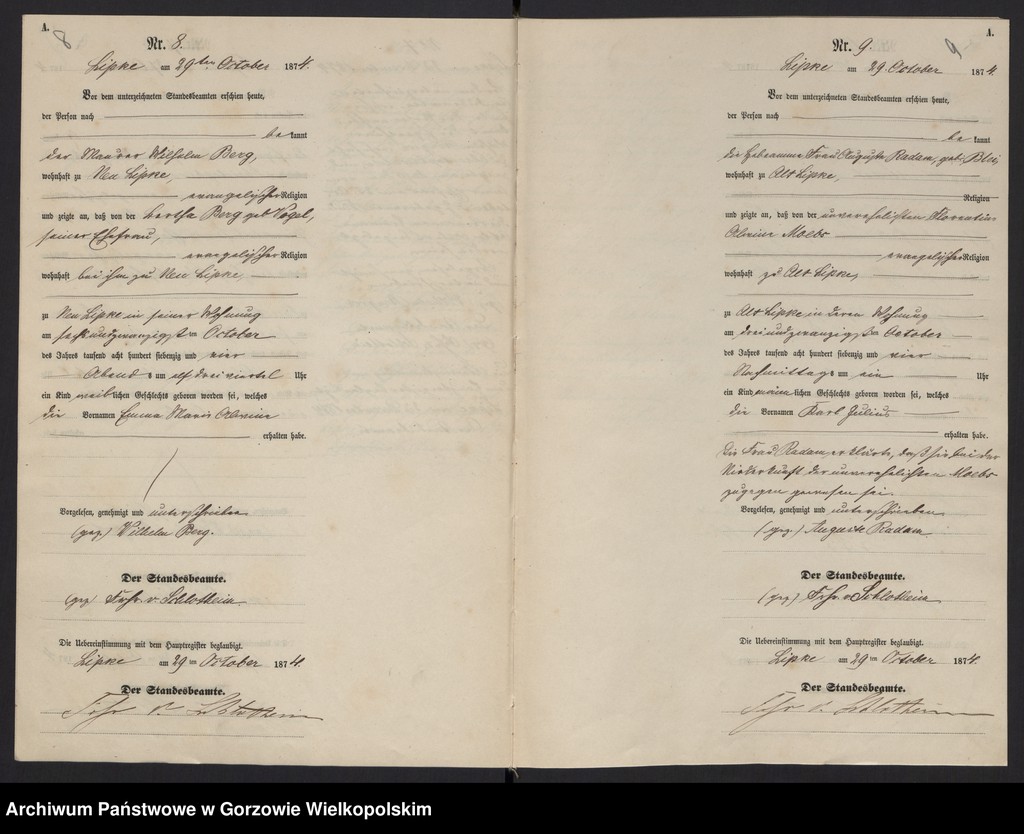 A.
8
Nr. 8.
Lipke am 29ten October 1874.
Vor dem unterzeichneten Standesbeamten erschien heute,
der Person nach
be kannt
der Maurer Wilhelm Berg,
wohnhaft zu Neu Lipke,
evangelischer Religion
und zeigte an, daß von der Bertha Berg geb Vogel,
seiner Ehefrau,
evangelischer Religion
wohnhaft bei ihm zu Neu Lipke,
zu Neu Lipke in seiner Wohnung
am sechs und zwanzigsten October
des Jahres tausend acht hundert siebenzig und vier
Abends um elf dreiviertel Uhr
ein Kind weib lichen Geschlechts geboren worden sei, welches
die Vornamen Emma Marie Alwine
erhalten habe.
Vorgelesen, genehmigt und unterschrieben
(gez.) Wilhelm Berg.
Der Standesbeamte.
(gez) Frhr. v. Schlotheim.
Die Uebereinstimmung mit dem Hauptregister beglaubigt.
Lipke am 29ten October 1874.
Der Standesbeamte.
Frhr v. Schlotheim
A.
9
Nr. 9.
Lipke am 29. October 1874.
Vor dem unterzeichneten Standesbeamten erschien heute,
der Person nach
be kannt
die Hebeamme Frau Auguste Radam, geb.
wohnhaft zu Alt Lipke,
Religion
und zeigte an, daß von der unverehelichten Florentine
Alwine Moebs
evangelischer Religion
wohnhaft zu Alt Lipke,
zu Alt Lipke in deren Wohnung
am drei und zwanzigsten October
des Jahres tausend acht hundert siebenzig und vier
Nachmittags um ein Uhr
ein Kind männ lichen Geschlechts geboren worden sei, welches
die Vornamen Karl Julius
erhalten habe.
Die Frau Radam erklärte, daß sie bei der
Niederkunft der unverehelichten Moebs
zugegen gewesen sei.
Vorgelesen, genehmigt und unterschrieben
(gez.) Auguste Radam
Der Standesbeamte.
(gez.) Frhr. v. Schlotheim
Die Uebereinstimmung mit dem Hauptregister beglaubigt.
Lipke am 29ten October 1874.
Der Standesbeamte.
Frhr v. Schlotheim
Archiwum Państwowe w Gorzowie Wielkopolskim